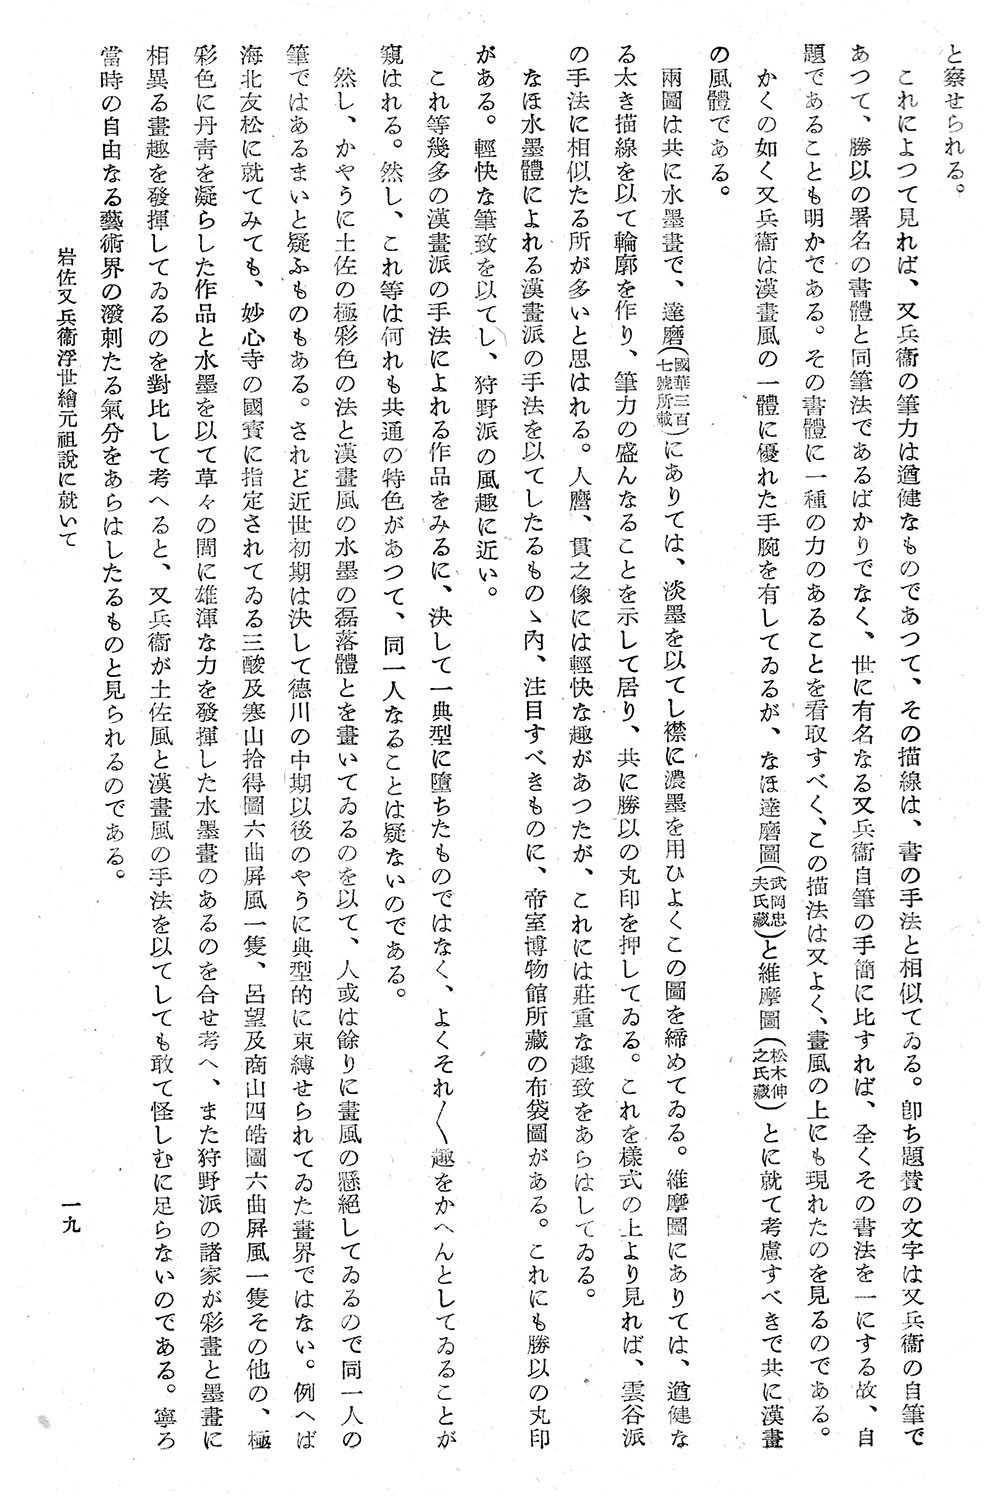 と察せられる。
これによつて見れば、又兵衞の筆力は遒健なものであつて、その描線は、書の手法と相似てゐる。卽ち題賛の文字は又兵衞の自筆で
あつて、勝以の署名の書體と同筆法であるばかりでなく、世に有名なる又兵衞自筆の手簡に比すれば、全くその書法を一にする故、自
題であることも明かである。その書體に一種の力のあることを看取すべく、この描法は又よく、畫風の上にも現れたのを見るのである。
かくの如く又兵衞は漢畫風の一體に優れた手腕を有してゐるが、なほ達磨圖(武岡忠夫氏藏)と維摩圖(松木伸之氏藏)とに就て考慮すべきで共に漢畫
の風體である。
兩圖は共に水墨畫で、達磨(國華三百七號所載)にありては、淡墨を以てし襟に濃墨を用ひよくこの圖を締めてゐる。維摩圖にありては、遒健な
る太き描線を以て輪廓を作り、筆力の盛んなることを示して居り、共に勝以の丸印を押してゐる。これを樣式の上より見れば、雲谷派
の手法に相似たる所が多いと思はれる。人麿、貫之像には輕快な趣があつたが、これには莊重な趣致をあらはしてゐる。
なほ水墨體によれる漢畫派の手法を以てしたるものゝ內、注目すべきものに、帝室博物館所藏の布袋圖がある。これにも勝以の丸印
がある。輕快な筆致を以てし、狩野派の風趣に近い。
これ等幾多の漢畫派の手法によれる作品をみるに、決して一典型に墮ちたものではなく、よくそれ〱趣をかへんとしてゐることが
窺はれる。然し、これ等は何れも共通の特色があつて、同一人なることは疑ないのである。
然し、かやうに土佐の極彩色の法と漢畫風の水墨の磊落體とを畫いてゐるのを以て、人或は餘りに畫風の懸絕してゐるので同一人の
筆ではあるまいと疑ふものもある。されど近世初期は決して德川の中期以後のやうに典型的に束縛せられてゐた畫界ではない。例へば
海北友松に就てみても、妙心寺の國寳に指定されてゐる三酸及寒山拾得圖六曲屛風一隻、呂望及商山四皓圖六曲屛風一隻その他の、極
彩色に丹靑を凝らした作品と水墨を以て草々の間に雄渾な力を發揮した水墨畫のあるのを合せ考へ、また狩野派の諸家が彩畫と墨畫に
相異る畫趣を發揮してゐるのを對比して考へると、又兵衞が土佐風と漢畫風の手法を以てしても敢て怪しむに足らないのである。寧ろ
當時の自由なる藝術界の潑剌たる氣分をあらはしたるものと見られるのである。
岩佐又兵衞浮世繪元祖說に就いて
一九